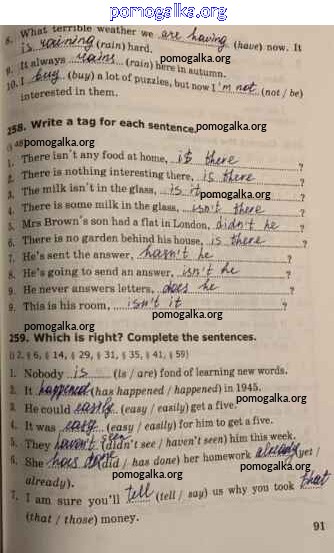 pomogalka.org
8. What terrible weather we are having (have) now. It
is raining (rain) hard.
pomogalka.org
9. It always rains (rain) here in autumn.
10. I buy (buy) a lot of puzzles, but now I'm not (not / be)
interested in them.
pomogalka.org
258. Write a tag for each sentence.
pomogalka.org
1. There isn't any food at home, is there ?
2. There is nothing interesting there, is there ?
3. The milk isn't in the glass, is it ?
pomogalka.org
4. There is some milk in the glass, isn't there ?
5. Mrs Brown's son had a flat in London, didn't he ?
6. There is no garden behind his house, is there ?
7. He's sent the answer, hasn't he ?
8. He's going to send an answer, isn't he ?
9. He never answers letters, does he ?
9. This is his room, isn't it ?
pomogalka.org
259. Which is right? Complete the sentences.
(§ 2, § 6, § 14, § 29, § 31, § 35, § 41, § 59)
pomogalka.org
1. Nobody is (is / are) fond of learning new words.
2. It happened (has happened / happened) in 1945.
3. He could easily (easy / easily) get a five.
pomogalka.org
4. It was easy (easy / easily) for him to get a five.
5. They haven't seen (didn't see / haven't seen) him this week.
pomogalka.org
6. She has done (did / has done) her homework already (yet /
already).
pomogalka.org
7. I am sure you'll tell (tell / say) us why you took that
(that / those) money.
91
pomogalka.org